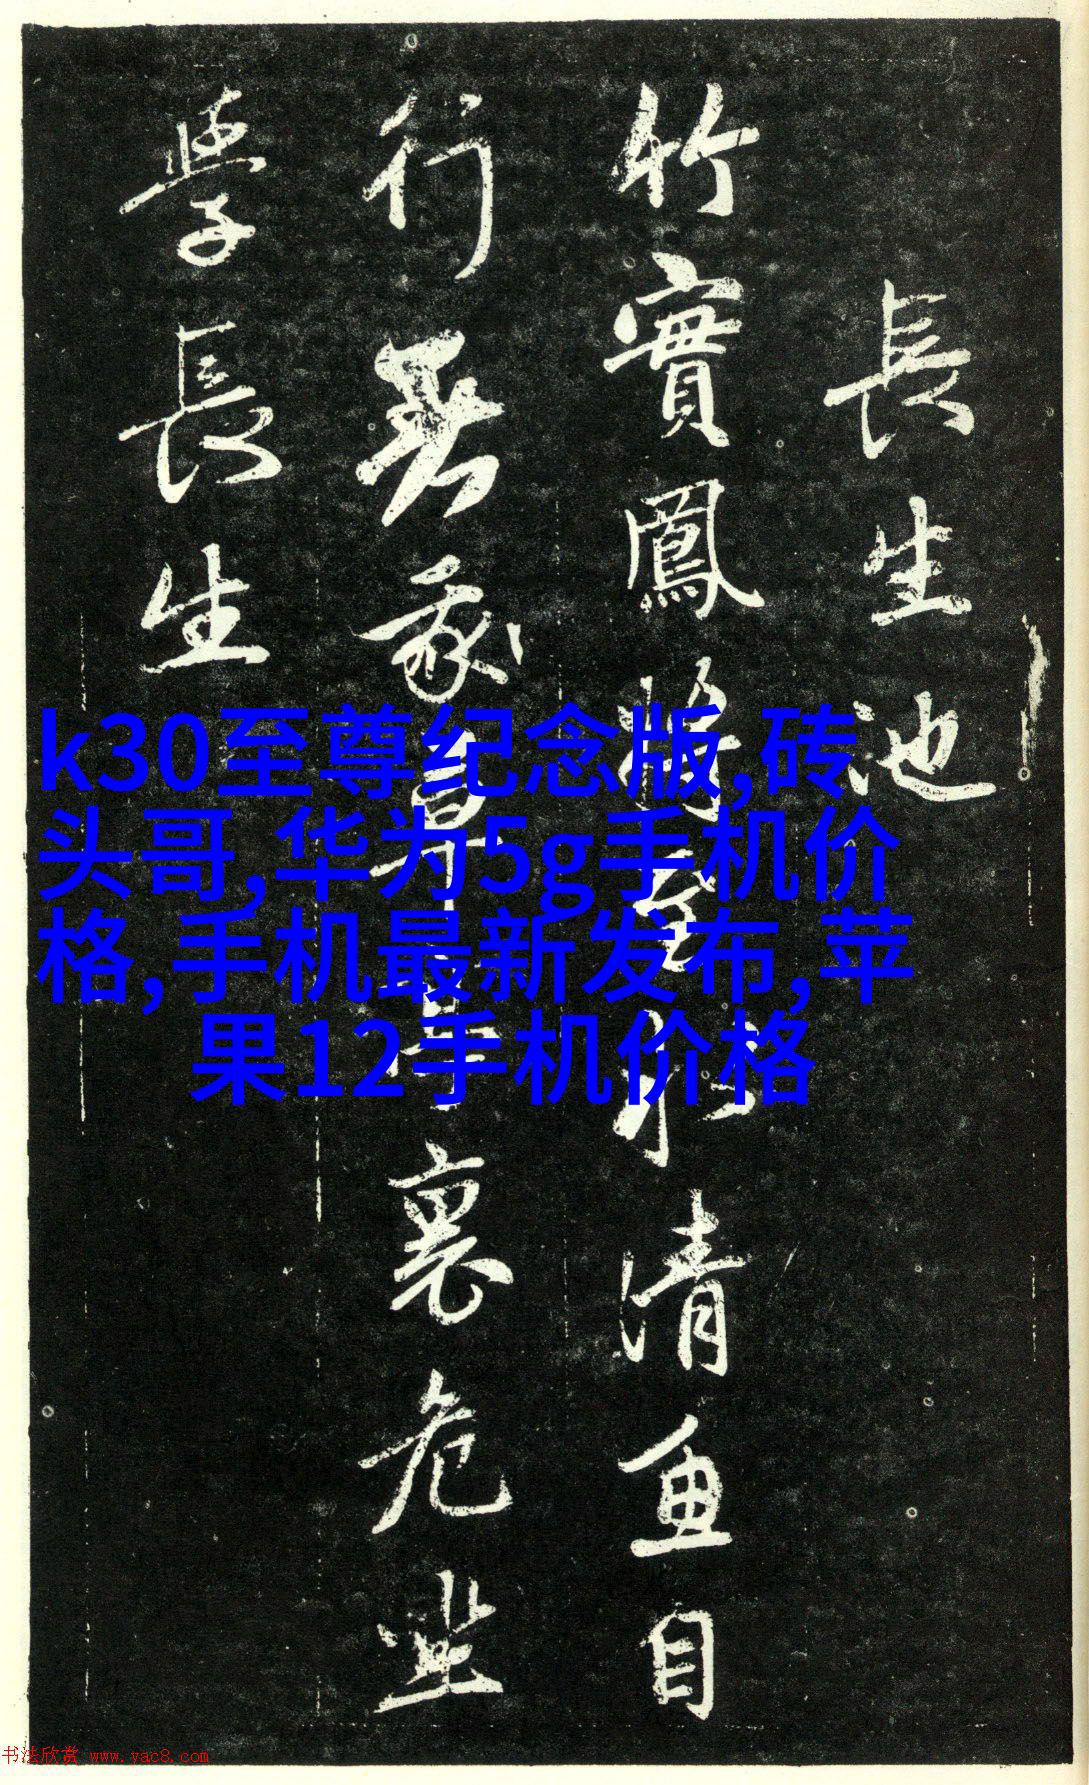 長生池
竹實鳳將水清魚自
行裏危坐
學長生
k30至尊纪念版,砖
头哥,华为5g手机价
格,手机最新发布,苹
果12手机价格
书法欣赏 www.yac8.com